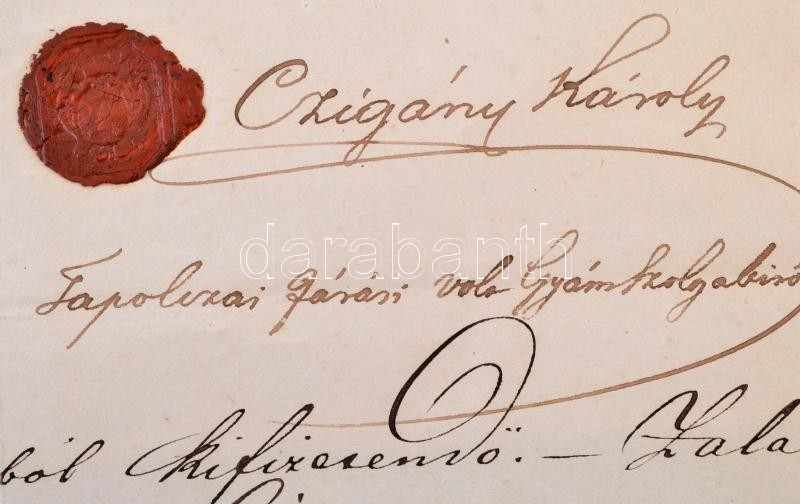 Czigány Károly
darabanth
Tapolczai Járási volt Gyám Szolgabiró
ból kifizesendő. – Zala